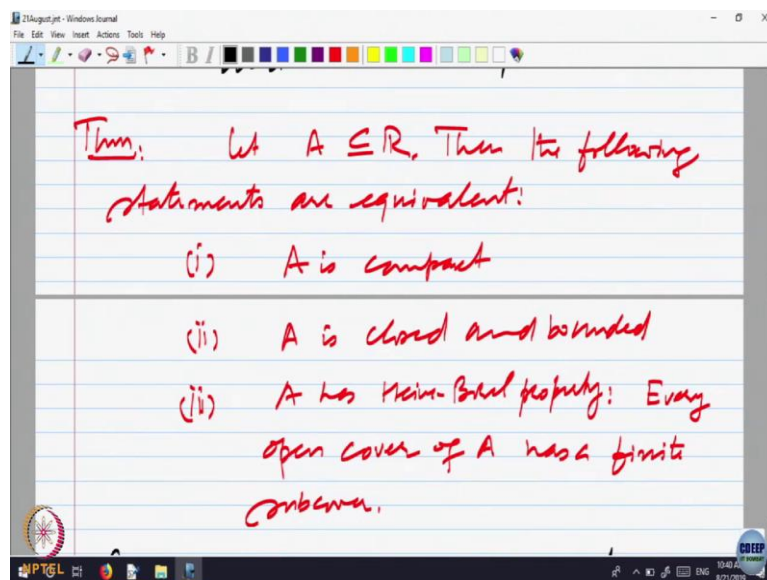 21August.jnt - Windows Journal
File Edit View Insert Actions Tools Help
B I
Thm. Let A ⊆ R. Then the following
statements are equivalent:
(i) A is compact
(ii) A is closed and bounded
(iii) A has Heine-Borel property: Every
open cover of A has a finite
subcover.
NPTEL
CDEEP
IIT BOMBAY
ENG
10:40 A
8/21/2019